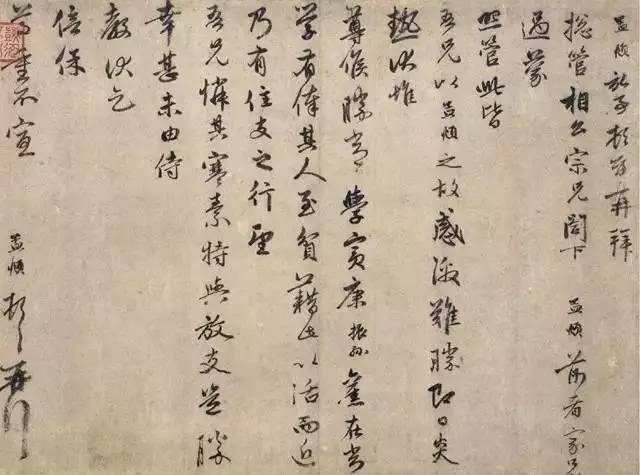 孟頫頓首再拜
總管相公宗兄閣下 孟頫前者家
過蒙
照管此皆
吾兄以孟頫之故感激難勝即日炎
熱伏惟
尊候勝常 學賓康振孫舊在常
學有俸其人至貧藉此以活而近
乃有住支之行望
吾兄憐其寒素特與放支豈勝
幸甚未由侍
教伏乞
倍保
尊重不宣
孟頫頓首再拜